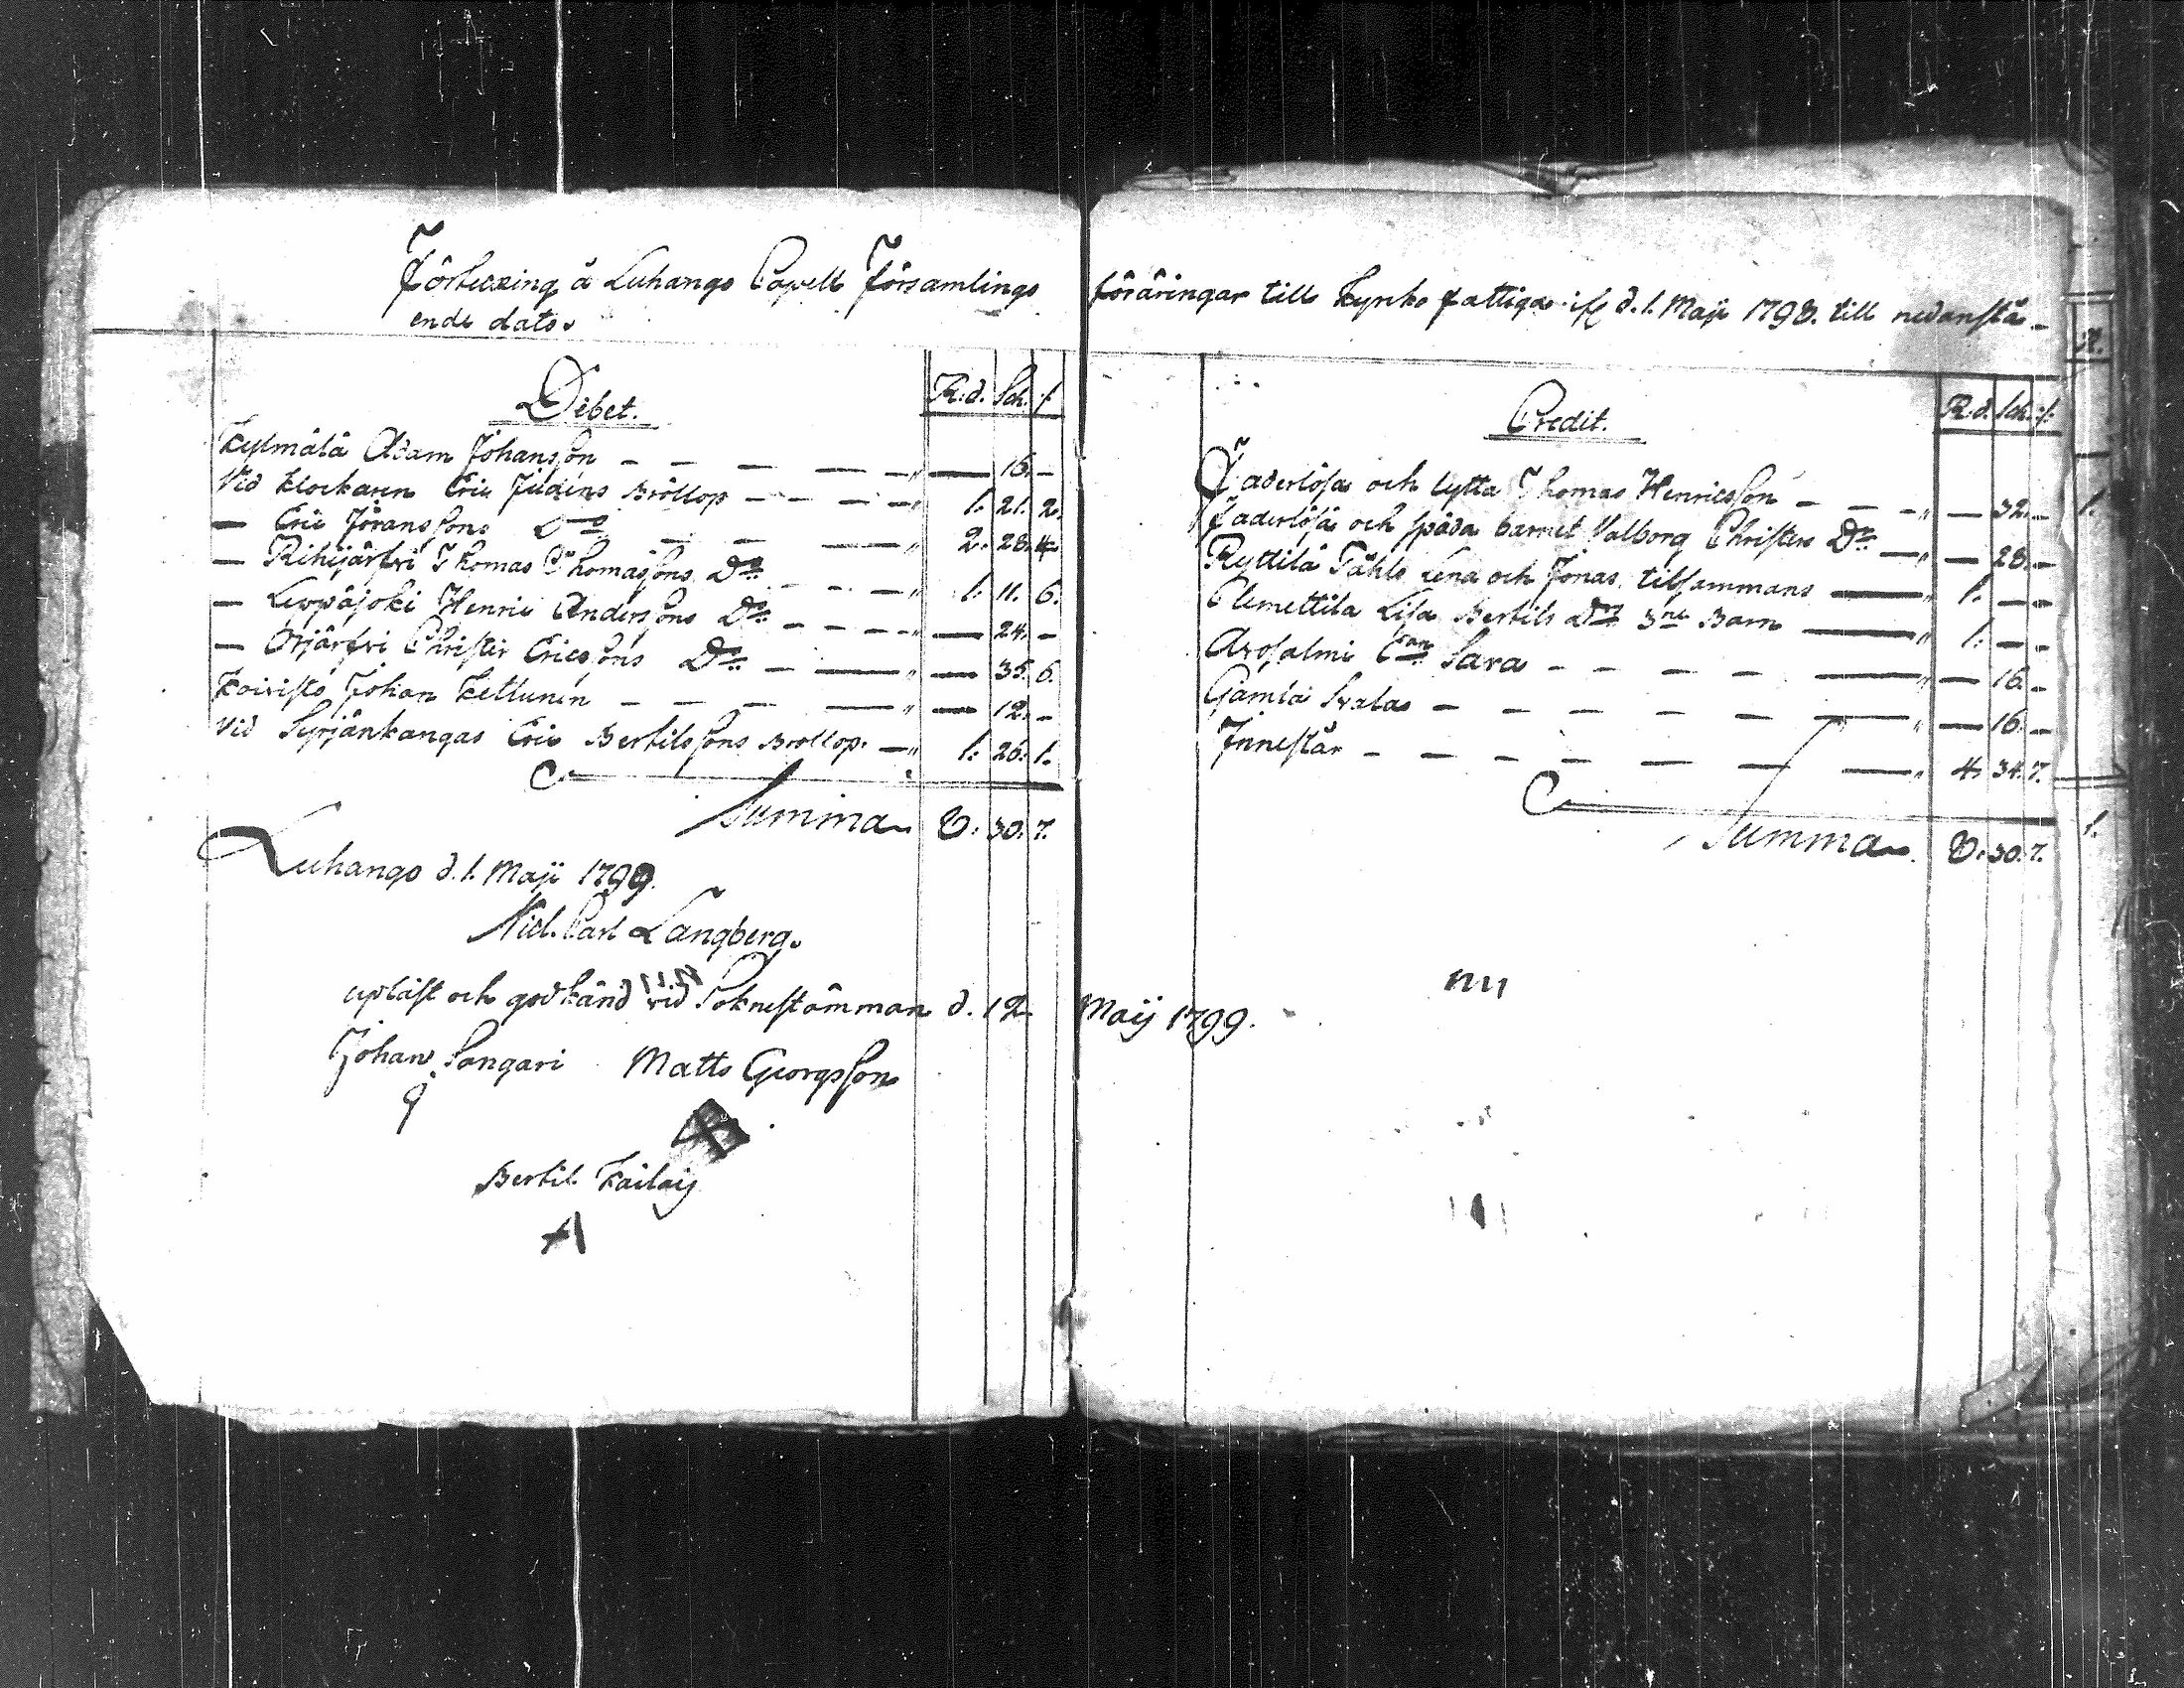 Förteckning å Luhango Capells Församlings föräringar till Kyrko fattiga ifr d. 1. Maji 1798. till nedanstå-
ende dato.
Debet. R:d. Sch. /:
Kylmälä Adam Johansson — — — — — „ — 16. —
Vid Klockaren Eric Judins Bröllop — — — — „ 1. 21. 2.
— Eric Jöranssons Do — — — „ 2. 28. 4.
— Rihijärfvi Thomas Thomassons Do — — — „ 1. 11. 6.
— Lerpäjoki Henric Anderssons Do — — — — „ — 24. —
— Orjärfvi Christer Ericssons Do — — „ — 35. 6.
Koivisto Johan Kettunen — — — — „ — 12. —
Vid Syrjänkangas Eric Bertilssons Bröllop. — „ 1. 26. 1.
Summa 8. 30. 7.
Luhango d. 1. Maji 1799.
Nicl. Carl Langberg.
upläst och godkänd vid Soknestämman d. 12 Maij 1799.
Johan Sangari Matts Georgsson
Bertil Kailaij
Credit. R:d. Sch. /:
Faderlösa och lytta Thomas Henricsson — — — „ — 32. —
Faderlösa och späda barnet Valborg Christers Dr — „ — 28. —
Ryttilä Påhls Lena och Jonas, tillsammans — „ 1. — —
Clemettila Lisa Bertils Drs 3ne Barn — „ 1. — —
Avosalmi Sara — — — — — „ — 16. —
Gamla Svalas — — — — — — — „ — 16. —
Innestår — — — — — — — „ 4. 34. 7.
Summa 8. 30. 7.